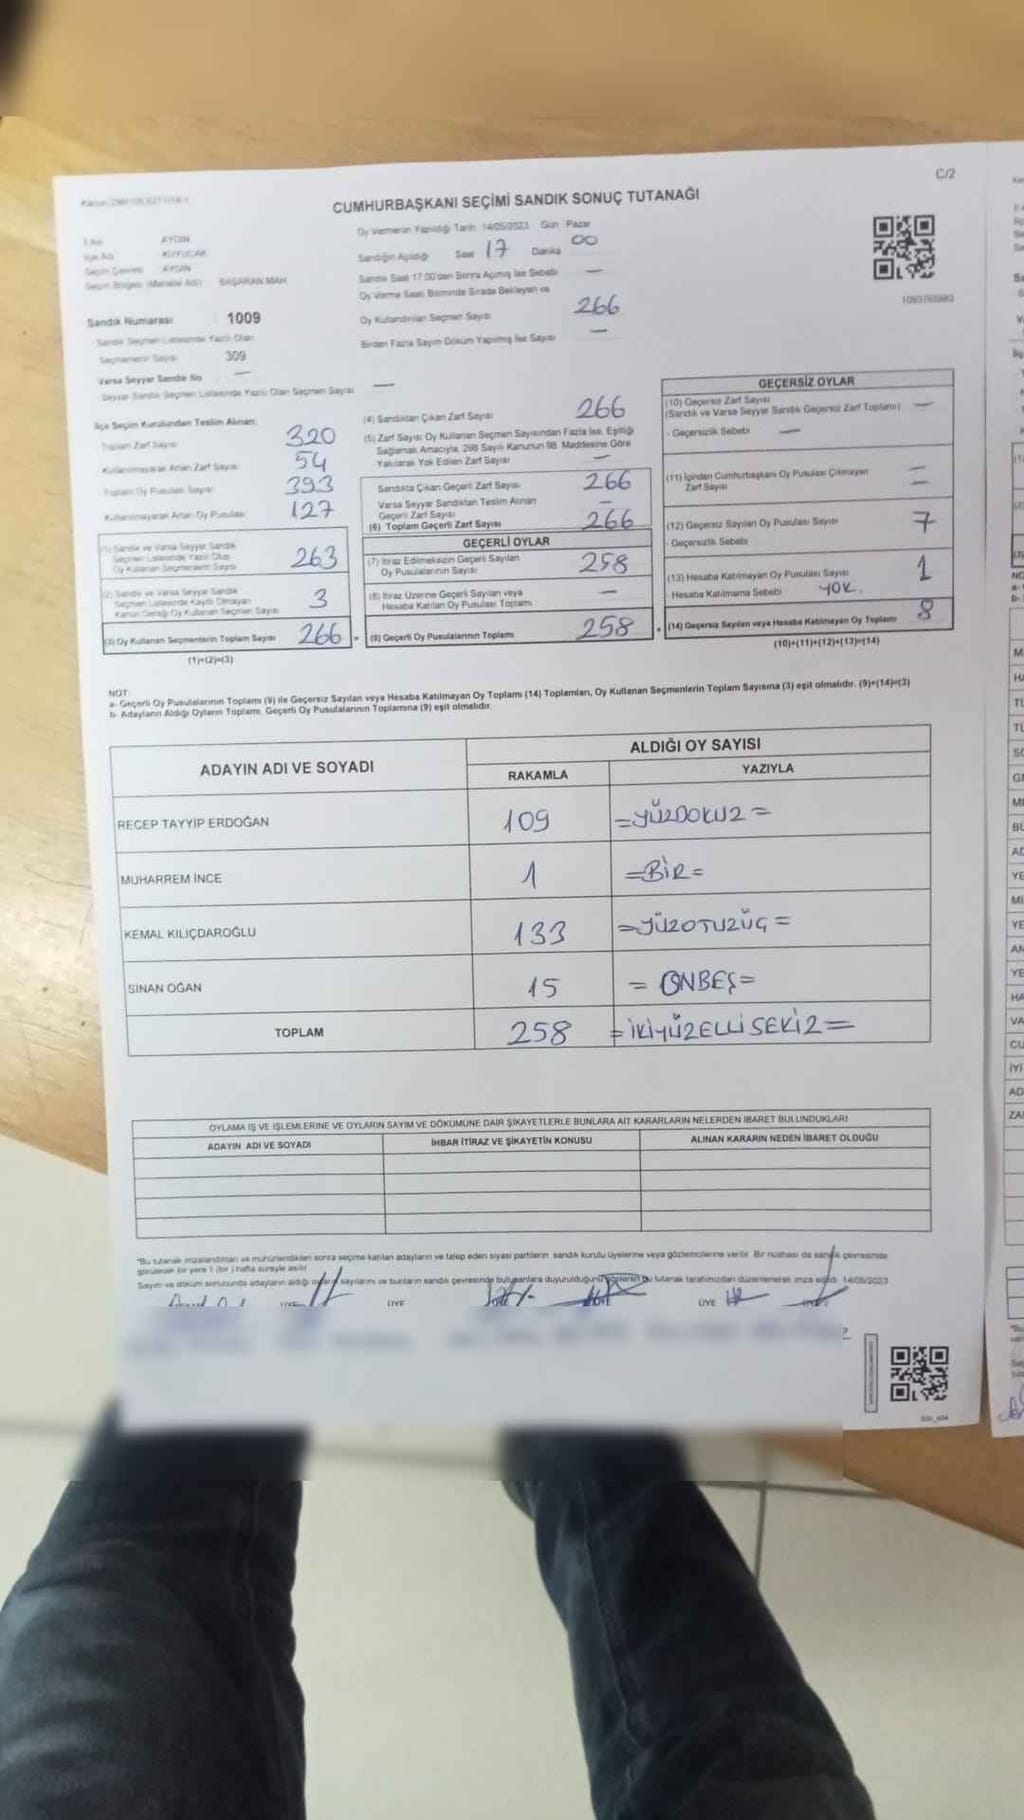 C/2
CUMHURBAŞKANI SEÇİMİ SANDIK SONUÇ TUTANAĞI
Oy Vermenin Yapıldığı Tarih 14/05/2023 Gün Pazar
İl Adı AYDIN
İlçe Adı KUYUCAK
Seçim Çevresi AYDIN
Seçim Bölgesi (Mahalle Adı) BAŞARAN MAH
Sandığın Açıldığı Saat 17 Dakika 00
Sandık Saat 17.00'den Sonra Açılmış İse Sebebi —
Oy Verme Saati Bitiminde Sırada Bekleyen ve
Oy Kullandırılan Seçmen Sayısı 266
Birden Fazla Sayım Döküm Yapılmış İse Sayısı —
1093765983
Sandık Numarası 1009
Sandık Seçmen Listesinde Yazılı Olan
Seçmenlerin Sayısı 309
Varsa Seyyar Sandık No —
Seyyar Sandık Seçmen Listesinde Yazılı Olan Seçmen Sayısı —
İlçe Seçim Kurulundan Teslim Alınan:
Toplam Zarf Sayısı 320
Kullanılmayarak Artan Zarf Sayısı 54
Toplam Oy Pusulası Sayısı 393
Kullanılmayarak Artan Oy Pusulası 127
(1) Sandık ve Varsa Seyyar Sandık
Seçmen Listesinde Yazılı Olup
Oy Kullanan Seçmenlerin Sayısı 263
(2) Sandık ve Varsa Seyyar Sandık
Seçmen Listesinde Kaydı Olmayan
Kanun Gereği Oy Kullanan Seçmenlerin Sayısı 3
(3) Oy Kullanan Seçmenlerin Toplam Sayısı 266 =
(1)+(2)=(3)
(4) Sandıktan Çıkan Zarf Sayısı 266
(5) Zarf Sayısı Oy Kullanan Seçmen Sayısından Fazla İse, Eşitliği
Sağlamak Amacıyla, 298 Sayılı Kanunun 98. Maddesine Göre
Yakılarak Yok Edilen Zarf Sayısı —
Sandıkta Çıkan Geçerli Zarf Sayısı 266
Varsa Seyyar Sandıktan Teslim Alınan
Geçerli Zarf Sayısı —
(6) Toplam Geçerli Zarf Sayısı 266
GEÇERLİ OYLAR
(7) İtiraz Edilmeksizin Geçerli Sayılan
Oy Pusulalarının Sayısı 258
(8) İtiraz Üzerine Geçerli Sayılan veya
Hesaba Katılan Oy Pusulası Toplamı —
(9) Geçerli Oy Pusulalarının Toplamı 258 +
GEÇERSİZ OYLAR
(10) Geçersiz Zarf Sayısı
(Sandık ve Varsa Seyyar Sandık Geçersiz Zarf Toplamı) —
- Geçersizlik Sebebi —
(11) İçinden Cumhurbaşkanı Oy Pusulası Çıkmayan
Zarf Sayısı —
(12) Geçersiz Sayılan Oy Pusulası Sayısı 7
- Geçersizlik Sebebi —
(13) Hesaba Katılmayan Oy Pusulası Sayısı 1
- Hesaba Katılmama Sebebi YOK.
(14) Geçersiz Sayılan veya Hesaba Katılmayan Oy Toplamı 8
(10)+(11)+(12)+(13)=(14)
NOT:
a- Geçerli Oy Pusulalarının Toplamı (9) ile Geçersiz Sayılan veya Hesaba Katılmayan Oy Toplamı (14) Toplamları, Oy Kullanan Seçmenlerin Toplam Sayısına (3) eşit olmalıdır. (9)+(14)=(3)
b- Adayların Aldığı Oyların Toplamı, Geçerli Oy Pusulalarının Toplamına (9) eşit olmalıdır.
ADAYIN ADI VE SOYADI
ALDIĞI OY SAYISI
RAKAMLA YAZIYLA
RECEP TAYYİP ERDOĞAN 109 =YÜZDOKUZ=
MUHARREM İNCE 1 =BİR=
KEMAL KILIÇDAROĞLU 133 =YÜZOTUZÜÇ=
SİNAN OĞAN 15 =ONBEŞ=
TOPLAM 258 =İKİYÜZELLİSEKİZ=
OYLAMA İŞ VE İŞLEMLERİNE VE OYLARIN SAYIM VE DÖKÜMÜNE DAİR ŞİKAYETLERLE BUNLARA AİT KARARLARIN NELERDEN İBARET BULUNDUKLARI
ADAYIN ADI VE SOYADI İHBAR İTİRAZ VE ŞİKAYETİN KONUSU ALINAN KARARIN NEDEN İBARET OLDUĞU
*Bu tutanak imzalandıktan ve mühürlendikten sonra seçime katılan adayların ve talep eden siyasi partilerin sandık kurulu üyelerine veya gözlemcilerine verilir. Bir nüshası da sandık çevresinde
görülecek bir yere 1 (bir) hafta süreyle asılır.
Sayım ve döküm sonucunda adayların aldığı oyların sayılarını ve bunların sandık çevresinde bulunanlara duyurulduğunu gösteren bu tutanak tarafımızdan düzenlenerek imza edildi. 14/05/2023
ÜYE ÜYE ÜYE